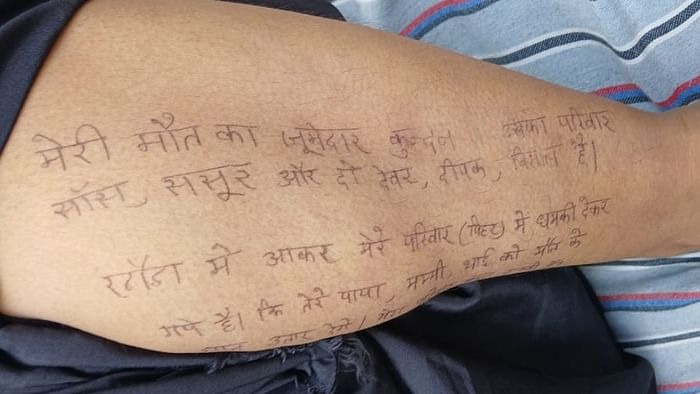 मेरी मौत का जूमेदार कुन्दन उसका परिवार
सॉस, ससूर और दो देवर, दीपक, विशाल है।
में आकर मेरे परिवार (पिहर) में धमकी देकर
गये है। कि तेरे पापा, मम्मी, भाई को मौत के
उतार देगे। मेरा